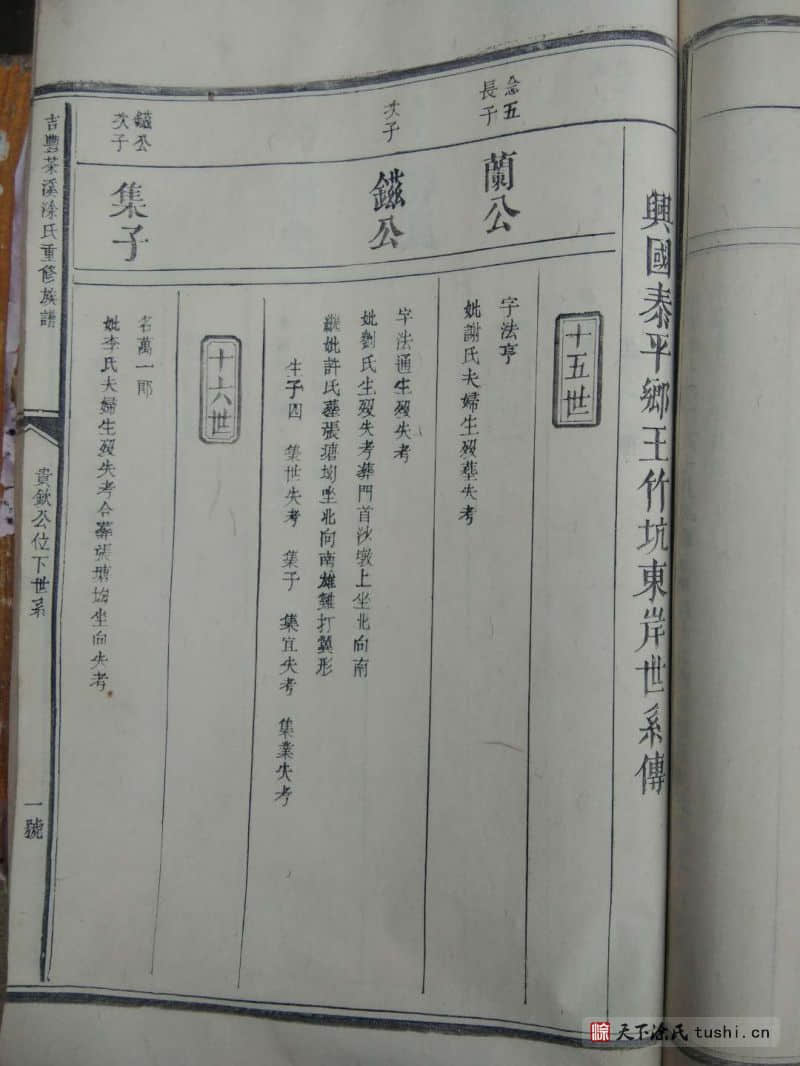 興國泰平鄉王竹坑東岸世系傳
十五世
念五
長子
蘭公
字法亨
妣謝氏夫婦生歿塟失考
次子
鎡公
字法通生歿失考
妣劉氏生歿失考葬門首沙墩上坐北向南
繼妣許氏塟張塘坳坐北向南雄雞打翼形
生子四 集世失考 集子 集宜失考 集業失考
十六世
鎡公
次子
集子
名萬一郎
妣李氏夫婦生歿失考合塟張塘坳坐向失考
吉豐茶溪涂氏重修族譜
貴欽公位下世系
一號
涂 天下涂氏 tushi.cn